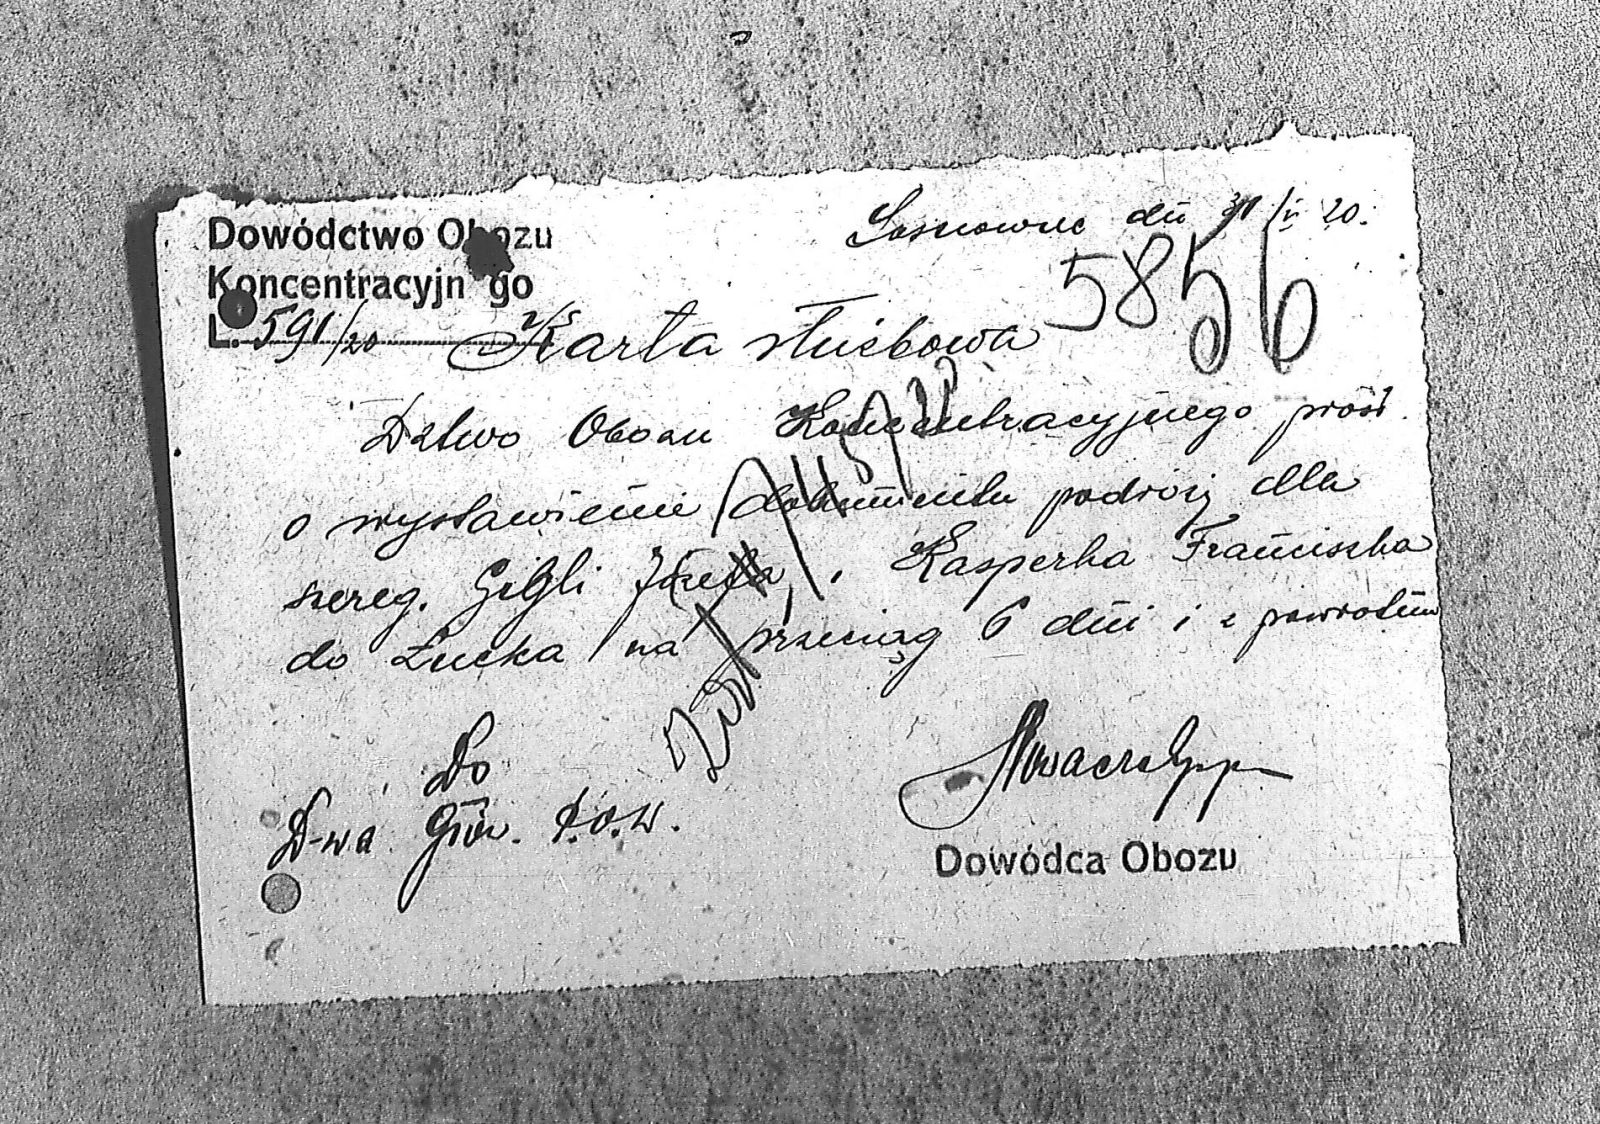 Dowództwo Obozu
Koncentracyjnego
L. 591/20
Sosnowiec dn 31/V 20.
5856
Karta służbowa
Dztwo Obozu Koncentracyjnego prosi
o wystawienie dokumentu podróży dla
szereg. Józefa i Kasperka Franciszka
do Łucka na przeciąg 6 dni i z powrotem
Do
D-wa Głów. P.O.W.
Dowódca Obozu